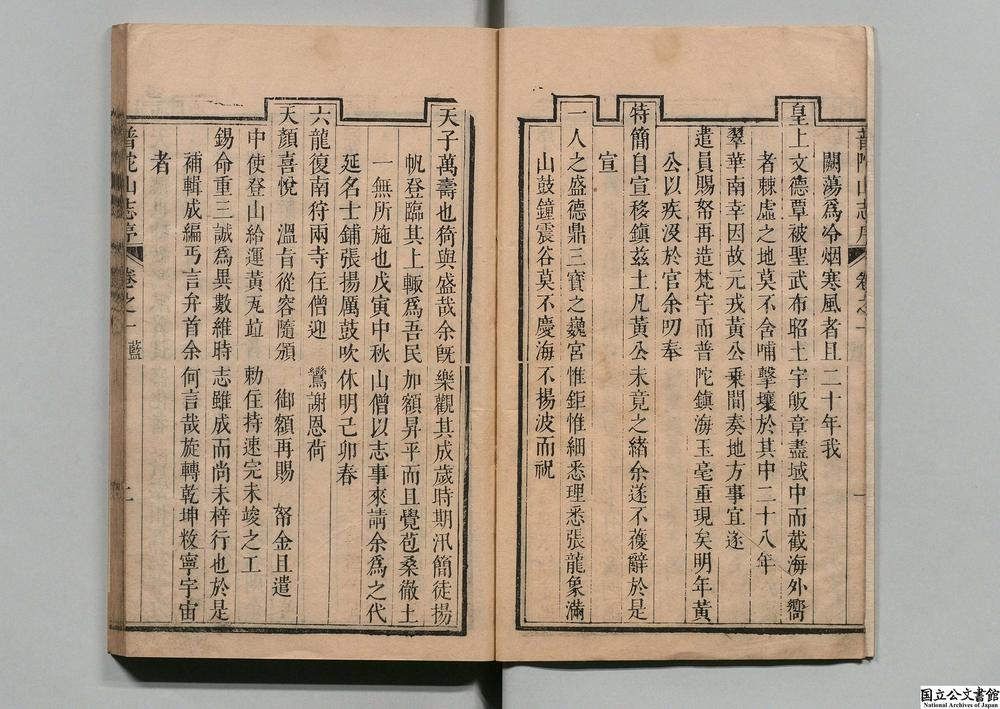 闕蕩爲冷烟寒風者且二十年我
皇上文德覃被聖武布昭土宇皈章盡域中而截海外嚮
者棘虛之地莫不含哺擊壤於其中二十八年
翠華南幸因故元戎黃公乘間奏地方事宜遂
遣員賜帑再造梵宇而普陀鎮海玉毫重現矣明年黃
公以疾沒於官余叨奉
特簡自宣移鎮茲土凡黃公未竟之緒余遂不獲辭於是
宣
一人之盛德鼎三寶之巍宮惟鉅惟細悉理悉張龍象滿
山鼓鐘震谷莫不慶海不揚波而祝
天子萬壽也猗與盛哉余旣樂觀其成歲時期汛簡徒揚
帆登臨其上輙爲吾民加額昇平而且覺苞桑徹土
一無所施也戊寅中秋山僧以志事來請余爲之代
延名士鋪張揚厲鼓吹休明己卯春
六龍復南狩兩寺住僧迎 鸞謝恩荷
天顏喜悅 溫旨從容隨頒 御額再賜 帑金且遣
中使登山給運黃瓦竝 勅住持速完未竣之工
錫命重三誠爲異數維時志雖成而尚未梓行也於是
補輯成編丐言弁首余何言哉旋轉乾坤敉寧宇宙
者
普陀山志序 卷之一
一
普陀山志序 卷之一 藍
二
国立公文書館
National Archives of Japan